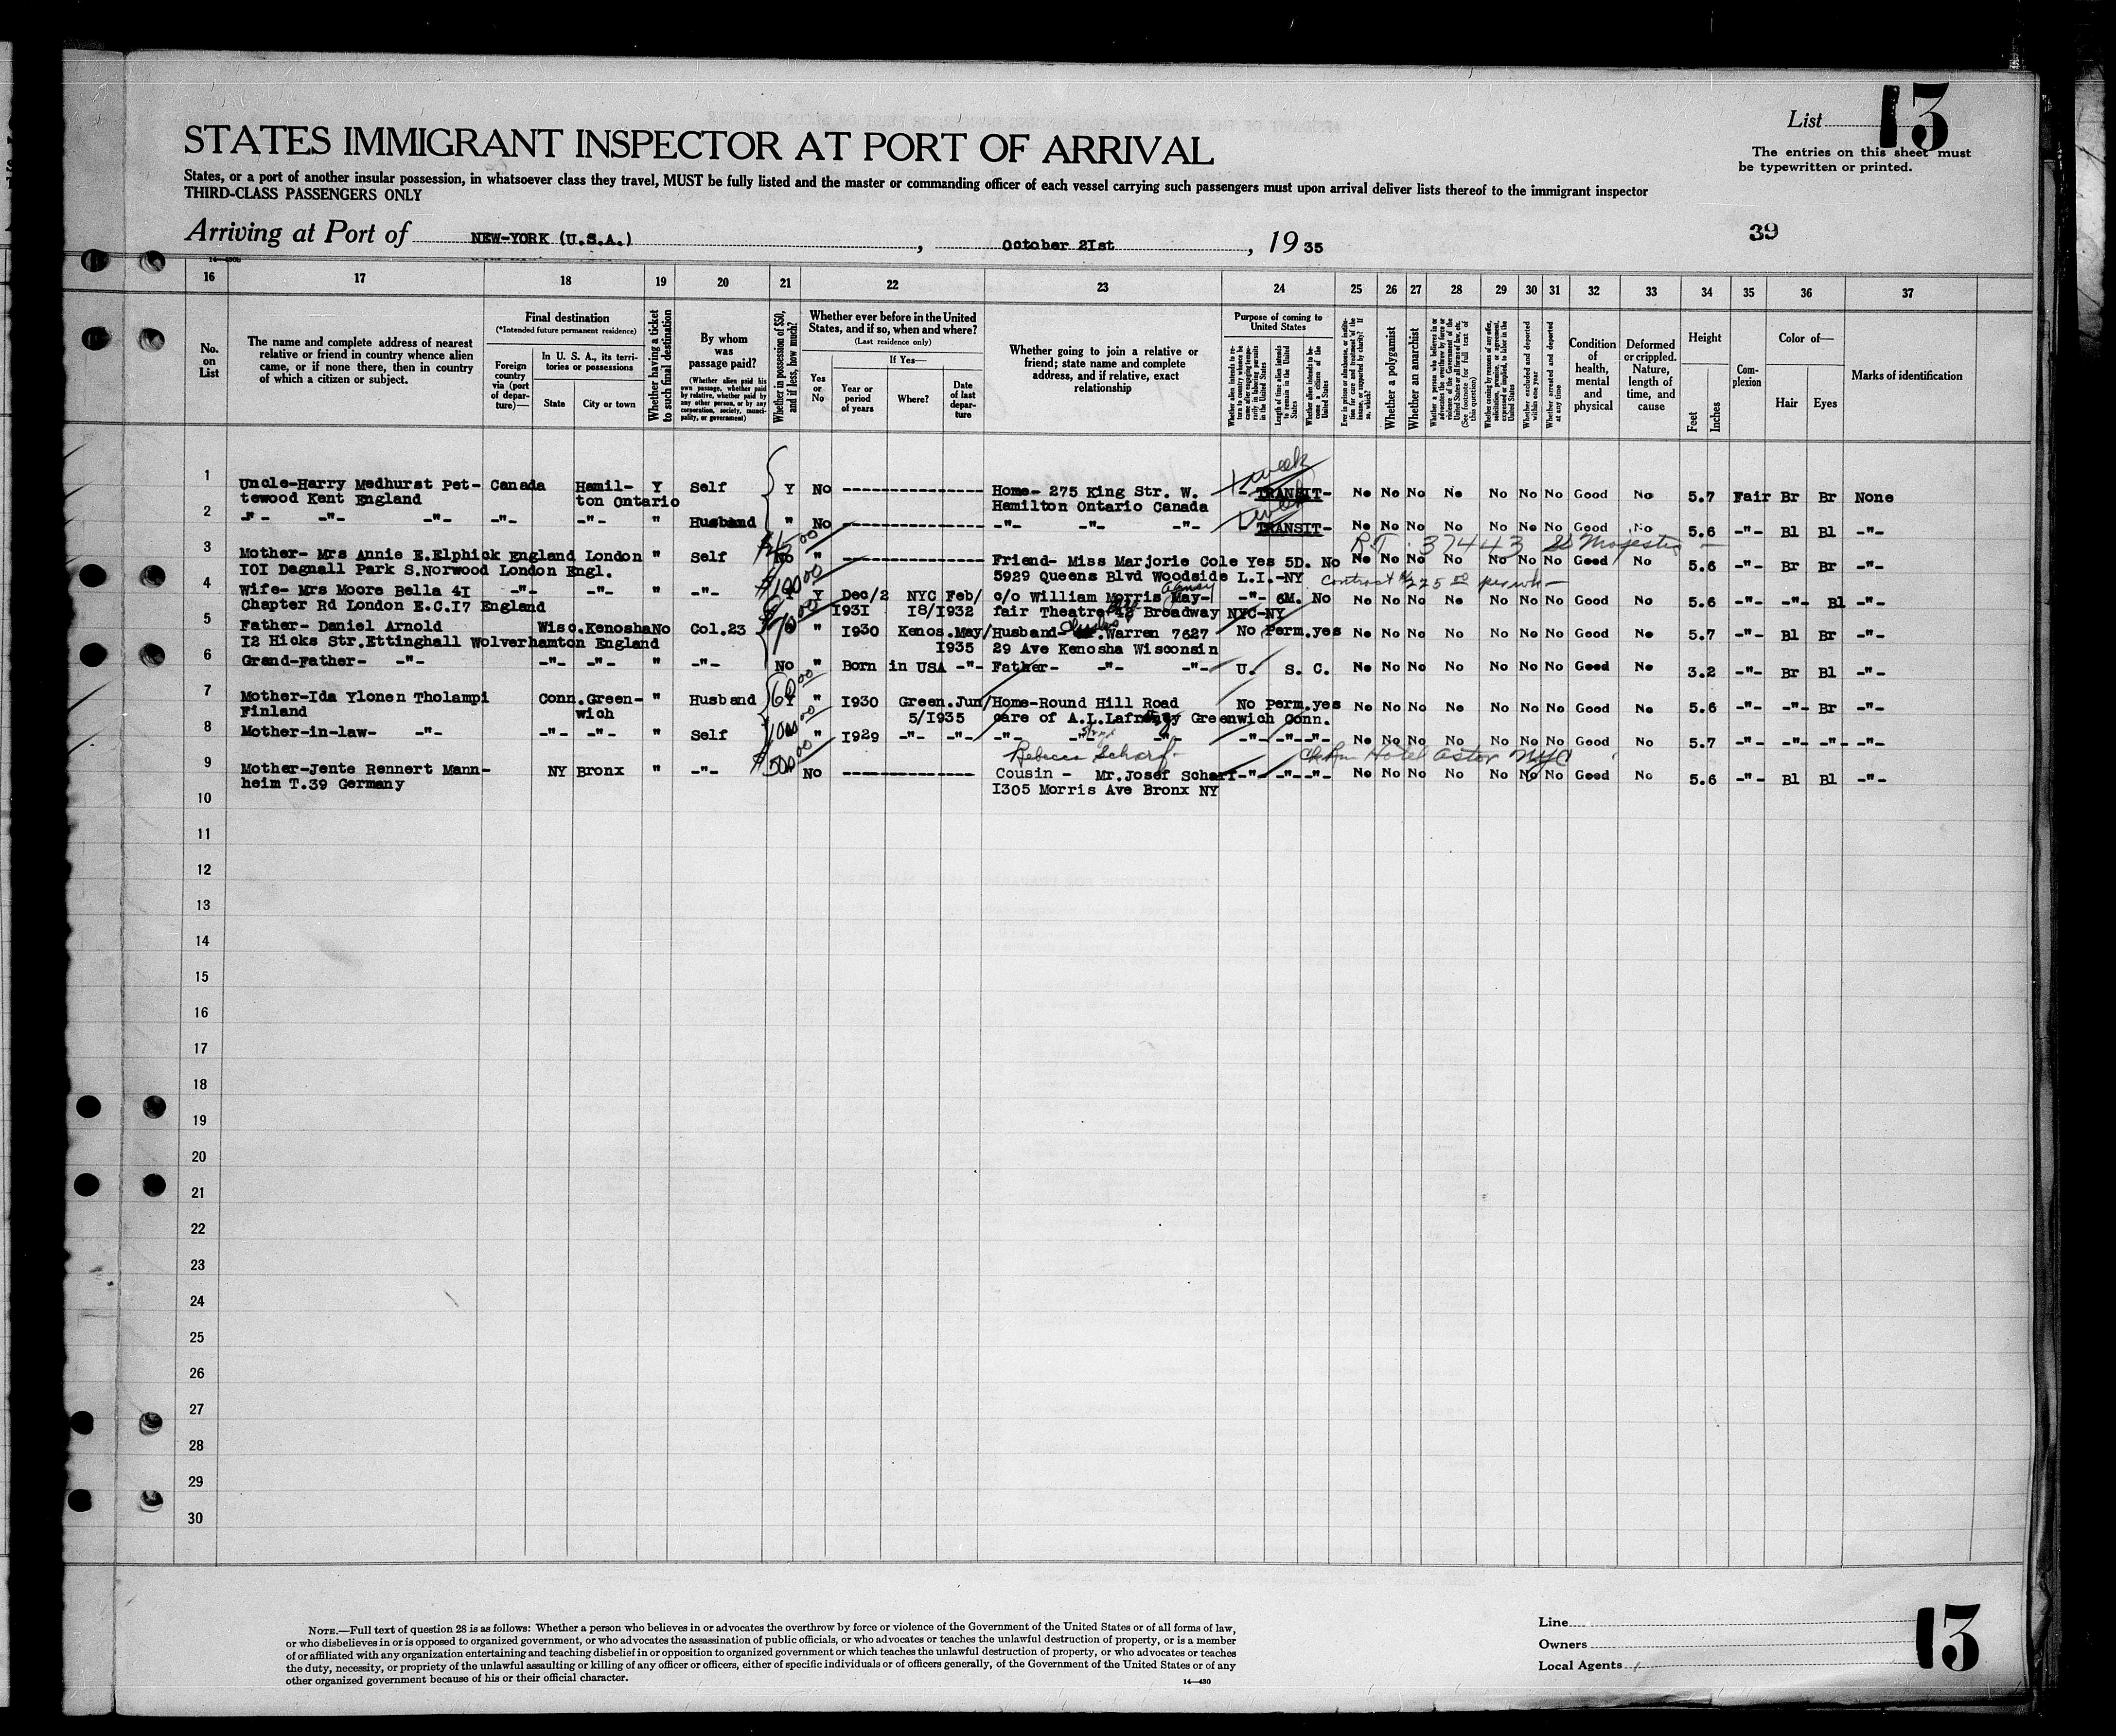 List 13
STATES IMMIGRANT INSPECTOR AT PORT OF ARRIVAL
The entries on this sheet must
be typewritten or printed.
States, or a port of another insular possession, in whatsoever class they travel, MUST be fully listed and the master or commanding officer of each vessel carrying such passengers must upon arrival deliver lists thereof to the immigrant inspector
THIRD-CLASS PASSENGERS ONLY
Arriving at Port of NEW-YORK (U.S.A.), October 2Ist, 19 35
39
16 17 18 19 20 21 22 23 24 25 26 27 28 29 30 31 32 33 34 35 36 37
No. on List
The name and complete address of nearest
relative or friend in country whence alien
came, or if none there, then in country
of which a citizen or subject.
Final destination
(*Intended future permanent residence)
Foreign country via (port of departure)—
In U. S. A., its territories or possessions
State
City or town
Whether having a ticket to such final destination
By whom was passage paid?
(Whether alien paid his own passage, whether paid by relative, whether paid by any other person, or by any corporation, society, municipality, or government)
Whether in possession of $50, and if less, how much?
Whether ever before in the United
States, and if so, when and where?
(Last residence only)
Yes or No
If Yes—
Year or period of years
Where?
Date of last departure
Whether going to join a relative or
friend; state name and complete
address, and if relative, exact
relationship
Purpose of coming to
United States
Length of time alien intends to remain in the United States
Whether alien intends to become a citizen of the United States
Whether a polygamist
Whether an anarchist
Whether arrested and deported at any time
Condition of health, mental and physical
Deformed or crippled. Nature, length of time, and cause
Height
Feet
Inches
Complexion
Color of—
Hair
Eyes
Marks of identification
1 week
1 Uncle-Harry Medhurst Pet- Canada Hamil- Y Self Y No Home- 275 King Str. W. -TRANSIT- No No No No No No No Good No 5.7 Fair Br Br None
tewood Kent England ton Ontario Hamilton Ontario Canada
1 week
2 -"- -"- -"- -"- -"- " Husband " No -"- -"- -"- -TRANSIT- No No No No No No No Good No 5.6 -"- Bl Bl -"-
R.T. 37443 SS Majestic
3 Mother- Mrs Annie E.Elphick England London " Self No " Friend- Miss Marjorie Cole Yes 5D. No No No No No No No No Good No 5.6 -"- Br Br -"-
IOI Dagnall Park S.Norwood London Engl. 5929 Queens Blvd Woodside L.I.-NY
$100.00 Contract
4 Wife- Mrs Moore Bella 4I -"- -"- " -"- Y Y Dec/2 NYC Feb/ c/o William Morris Agency May- -"- 6M. No No No No No No No No Good No 5.6 -"- -"- Bl -"-
Chapter Rd London E.C.I7 England I93I I8/I932 fair Theatre 42 Broadway NYC-NY
$70.00
5 Father- Daniel Arnold Wisc.Kenosha No Col.23 " I930 Kenos.May/ Husband- Charles Warren 7627 No Perm.yes No No No No No No No Good No 5.7 -"- Bl Br -"-
I2 Hicks Str.Ettinghall Wolverhamton England I935 29 Ave Kenosha Wisconsin
6 Grand-Father- -"- -"- -"- " -"- No " Born in USA -"- Father- -"- -"- U. S. C. No No No No No No No Good No 3.2 -"- Br Bl -"-
60.00
7 Mother-Ida Ylonen Tholampi Conn.Green- " Husband Y " I930 Green.Jun/ Home-Round Hill Road No Perm.yes No No No No No No No Good No 5.6 -"- -"- Br -"-
Finland wich 5/I935 care of A.L. Greenwich Conn.
1000.00
8 Mother-in-law- -"- -"- -"- " Self " I929 -"- -"- -"- -"- -"- -"- -"- -"- No No No No No No No Good No 5.7 -"- -"- -"- -"-
$500.00 Rebecca Scharf Hotel Astor NYC
9 Mother-Jente Rennert Mann- NY Bronx " -"- No Cousin - Mr.Josef Scharf -"- -"- -"- No No No No No No No Good No 5.6 -"- Bl Bl -"-
heim T.39 Germany I305 Morris Ave Bronx NY
10
11
12
13
14
15
16
17
18
19
20
21
22
23
24
25
26
27
28
29
30
NOTE.—Full text of question 28 is as follows: Whether a person who believes in or advocates the overthrow by force or violence of the Government of the United States or of all forms of law,
or who disbelieves in or is opposed to organized government, or who advocates the assassination of public officials, or who advocates or teaches the unlawful destruction of property, or is a member
of or affiliated with any organization entertaining and teaching disbelief in or opposition to organized government or which teaches the unlawful destruction of property, or who advocates or teaches
the duty, necessity, or propriety of the unlawful assaulting or killing of any officer or officers, either of specific individuals or of officers generally, of the Government of the United States or of any
other organized government because of his or their official character.
14—430
Line
Owners
Local Agents
13